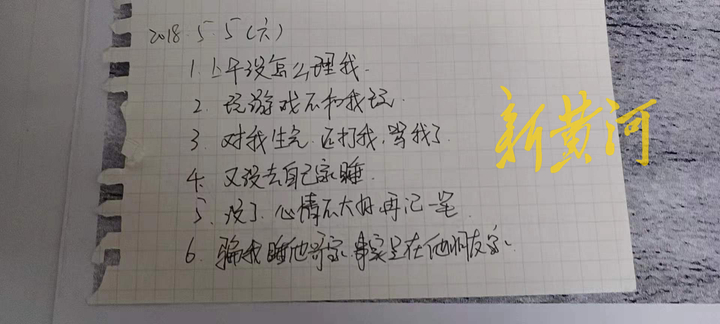 2018.5.5(六)
1.上午没怎么理我.
2.玩游戏不和我玩.
3.对我生气.还打我,骂我了.
4.又没去自己家睡.
5.没了.心情不太好再记一笔.
6.骗我睡他哥家.事实是在他朋友家.
新黄河